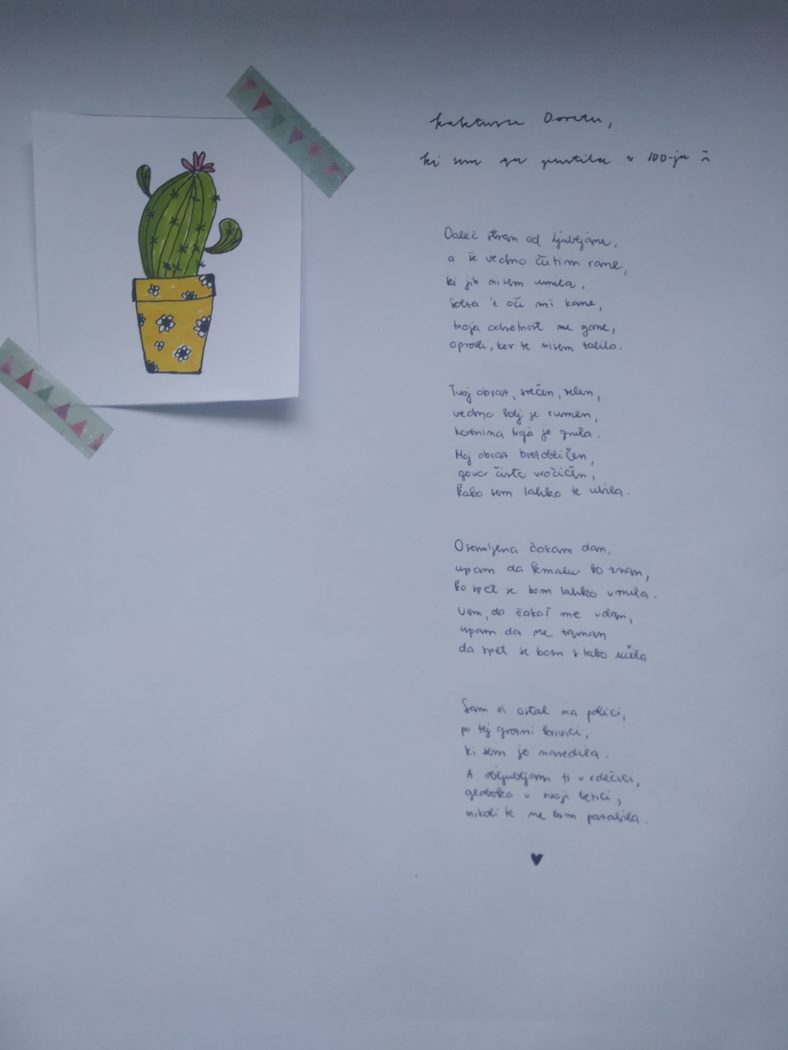 kaktusu Doretu,
ki sem ga pustila v 100-ju :(
Daleč stran od Ljubljane,
a še vedno čutim rane,
ki jih nisem umila.
Solza iz oči mi kane,
tvoja odsotnost me gane,
oprosti, ker te nisem zalila.
Tvoj obraz, srečen, zelen,
vedno bolj je rumen,
korenina tvoja je gnila.
Moj obraz brezobličen,
govor čisto vročičen,
kako sem lahko te ubila.
Osamljena čakam dan,
upam da kmalu bo znan,
ko spet se bom lahko vrnila.
Vem, da čakaš me vdan,
upam da ne zaman
da spet se bom s tabo učila.
Sam si ostal na polici,
po tej grozni krivici,
ki sem jo naredila.
A obljubljam ti v rdečici,
globoko v svoji betici,
nikoli te ne bom pozabila.